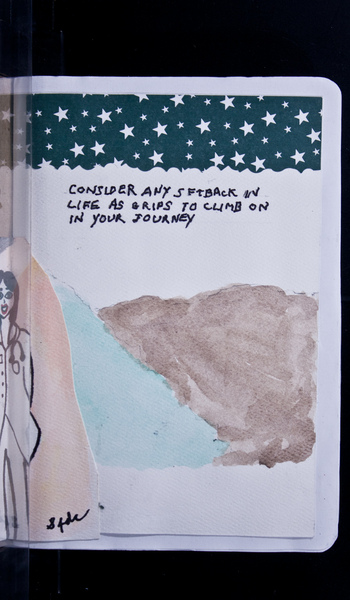 CONSIDER ANY SETBACK IN
LIFE AS GRIPS TO CLIMB ON
IN YOUR JOURNEY